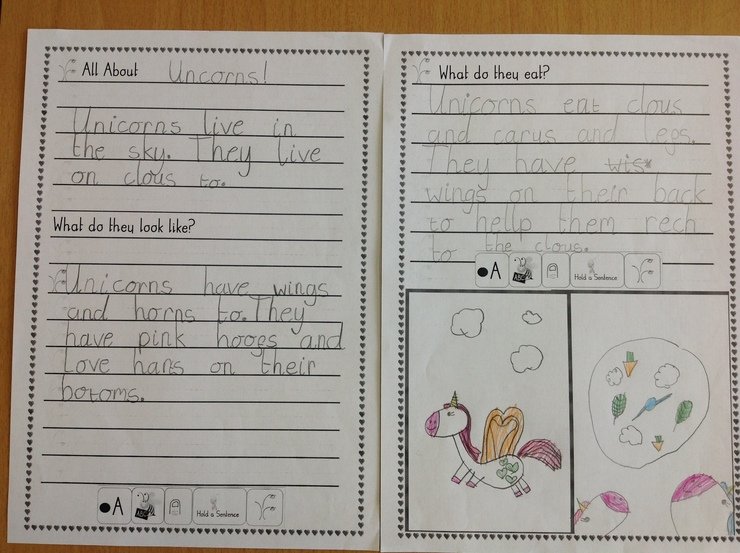 All About Uncorns!
Unicorns live in
the sky. They live
on clous to.
What do they look like?
Unicorns have wings
and horns to. They
have pink hooges and
Love harts on their
botoms.
A
ABC
Hold a Sentence
What do they eat?
Unicorns eat clous
and carus and legs.
They have wis
wings on their back
to hellp them rech
to the clous.
A
ABC
Hold a Sentence